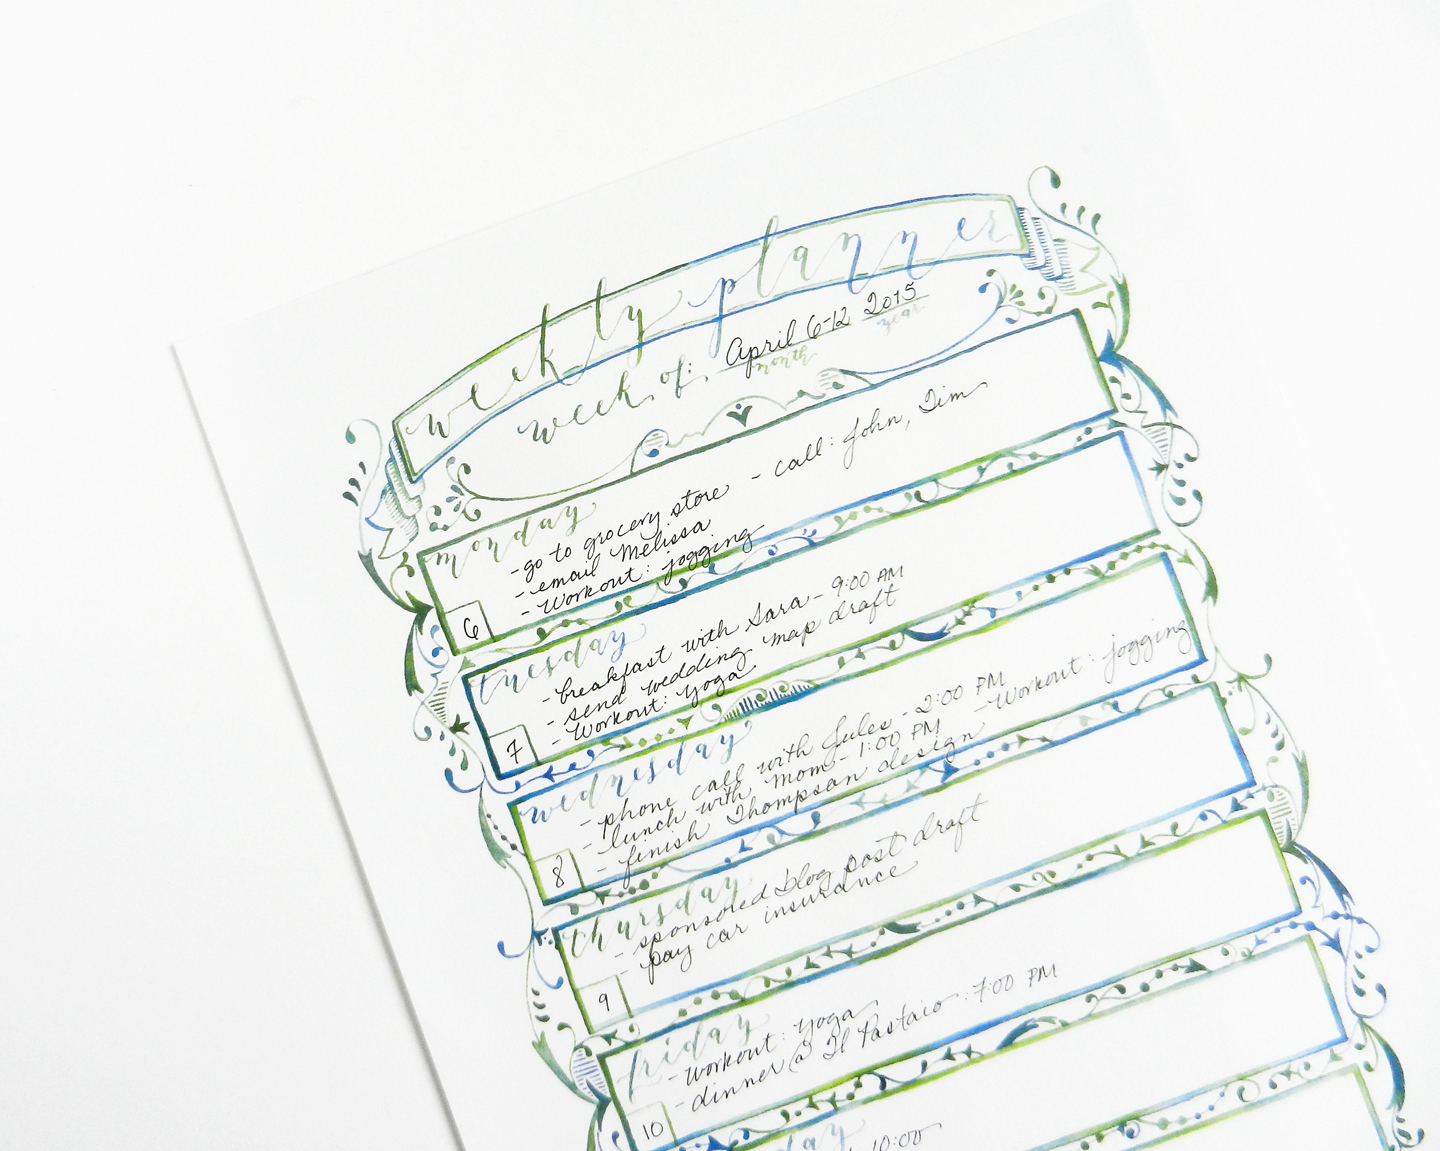 weekly planner
week of: April 6-12 2015
month year
monday
- go to grocery store - call: John, Tim
- email Melissa
- Workout: jogging
6
tuesday
- breakfast with Sara - 9:00 AM
- send wedding map draft
- Workout: yoga
7
wednesday
- phone call with Jules - 2:00 PM - Workout: jogging
- lunch with mom - 1:00 PM
- finish Thompson design
8
thursday
- sponsored blog post draft
- pay car insurance
9
friday
- Workout: yoga
- dinner @ Il Pastaio: 7:00 PM
10
day
10:00